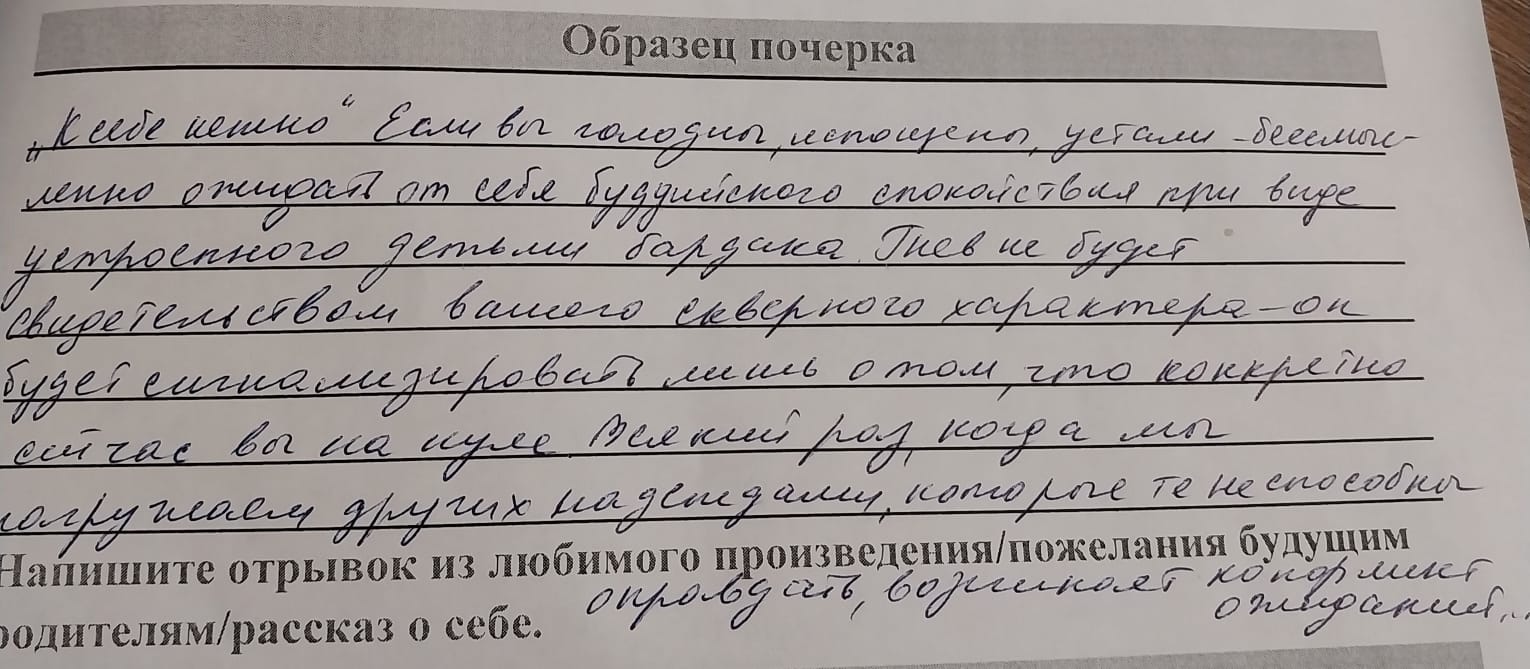 Образец почерка
„К себе нежно“ Если вы голодны, истощены, устали – бессмыс-
ленно ожидать от себя буддийского спокойствия при виде
устроенного детьми бардака. Гнев не будет
свидетельством вашего скверного характера – он
будет сигнализировать лишь о том, что конкретно
сейчас вы на нуле. Всякий раз, когда мы
нагружаем других надеждами, которые те неспособны
Напишите отрывок из любимого произведения/пожелания будущим
оправдать, возникает конфликт
ожиданий...
родителям/рассказ о себе.